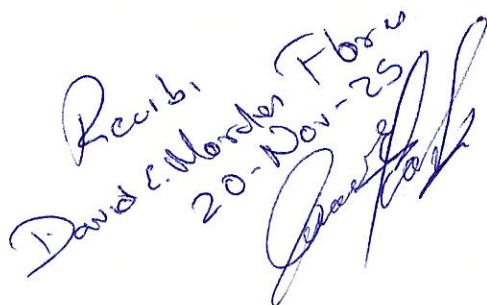 Recibi
David E. Morales Flores
20-Nov-25